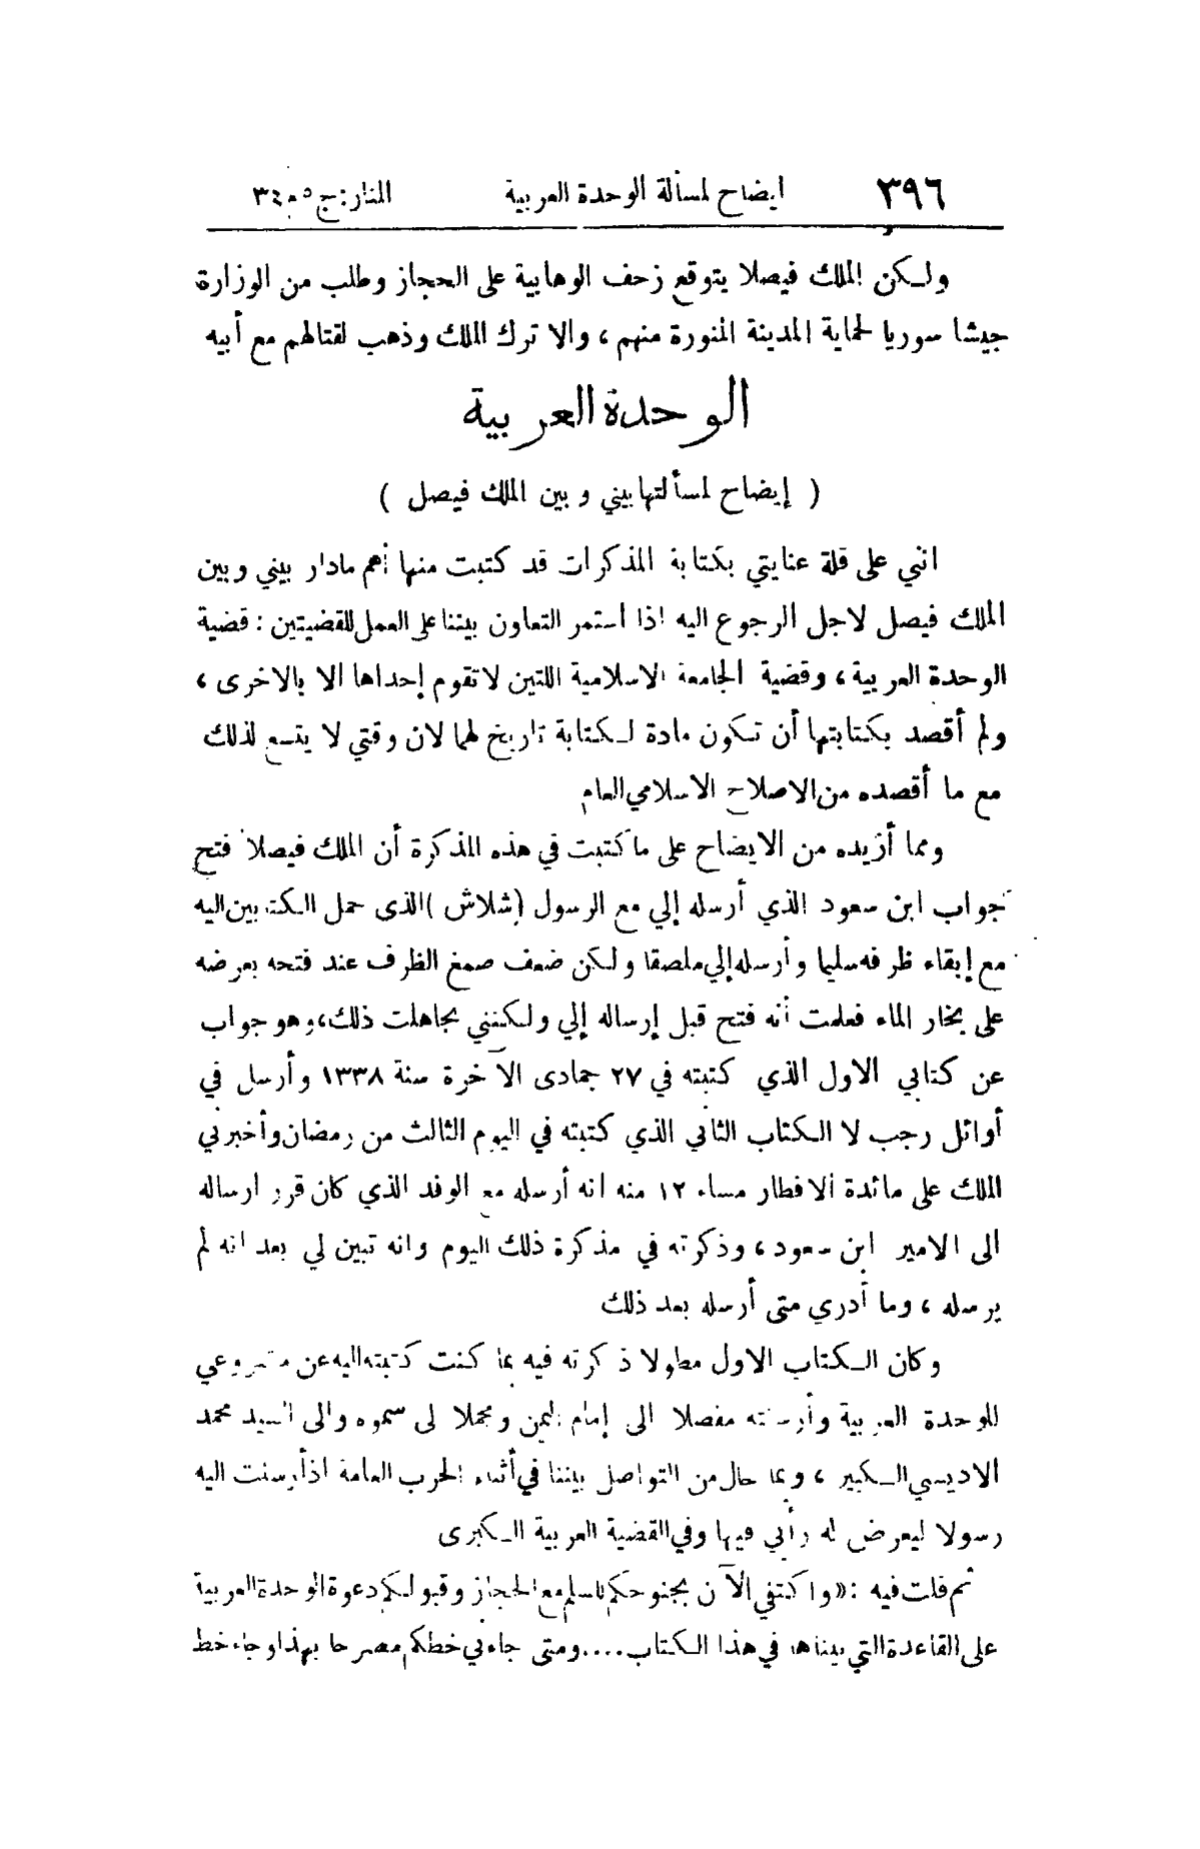 ٣٩٦ ايضاح لمسألة الوحدة العربية المنار: ج ٥ م ٣٤
ولكن الملك فيصلا يتوقع زحف الوهابية على الحجاز وطلب من الوزارة
جيشا سوريا لحماية المدينة المنورة منهم ، والا ترك الملك وذهب لقتالهم مع أبيه
الوحدة العربية
( إيضاح لمسألتها بيني وبين الملك فيصل )
انني على قلة عنايتي بكتابة المذكرات قد كتبت منها أهم مادار بيني وبين
الملك فيصل لاجل الرجوع اليه اذا استمر التعاون بيننا على العمل للقضيتين : قضية
الوحدة العربية ، وقضية الجامعة الاسلامية اللتين لا تقوم إحداها الا بالاخرى ،
ولم أقصد بكتابتها أن تكون مادة لكتابة تاريخ لهما لان وقتي لا يتسع لذلك
مع ما أقصده من الاصلاح الاسلامي العام
ومما أزيده من الايضاح على ما كتبت في هذه المذكرة أن الملك فيصلا فتح
جواب ابن سعود الذي أرسله إلي مع الرسول (شلاش) الذى حمل الكتابين اليه
مع إبقاء ظرفه سليما وأرسله إلي ملصقا ولكن ضعف صمغ الظرف عند فتحه بعرضه
على بخار الماء فعلمت أنه فتح قبل إرساله إلي ولكنني تجاهلت ذلك، وهو جواب
عن كتابي الاول الذي كتبته في ٢٧ جمادى الآخرة سنة ١٣٣٨ وأرسل في
أوائل رجب لا الكتاب الثاني الذي كتبته في اليوم الثالث من رمضان وأخبرني
الملك على مائدة الافطار مساء ١٢ منه انه أرسله مع الوفد الذي كان قرر ارساله
الى الامير ابن سعود ، وذكرته في مذكرة ذلك اليوم وانه تبين لي بعد انه لم
يرسله ، وما أدري متى أرسله بعد ذلك
وكان الكتاب الاول مطولا ذكرته فيه بما كنت كتبته اليه عن مشروعي
للوحدة العربية وأرسلته مفصلا الى إمام اليمن ومجملا لى سموه والى السيد محمد
الادريسي الكبير ، وبما حال من التواصل بيننا في أثناء الحرب العامة اذ أرسلت اليه
رسولا ليعرض له رأيي فيها وفي القضية العربية الكبرى
ثم قلت فيه : «واكتفي الآن بجنوحكم للسلم مع الحجاز وقبولكم دعوة الوحدة العربية
على القاعدة التي بيناها في هذا الكتاب .... ومتى جاءني خطكم مصرحا بهذا وجاء خط